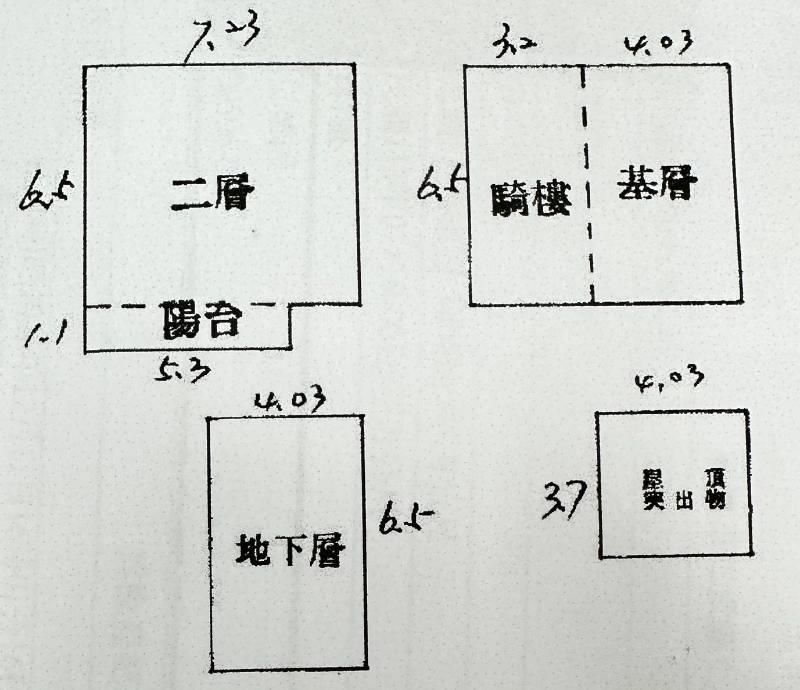 7.23
6.5
二層
1.1
陽台
5.3
3.2
4.03
6.5
騎樓
基層
4.03
6.5
地下層
4.03
3.7
屋頂
突出物